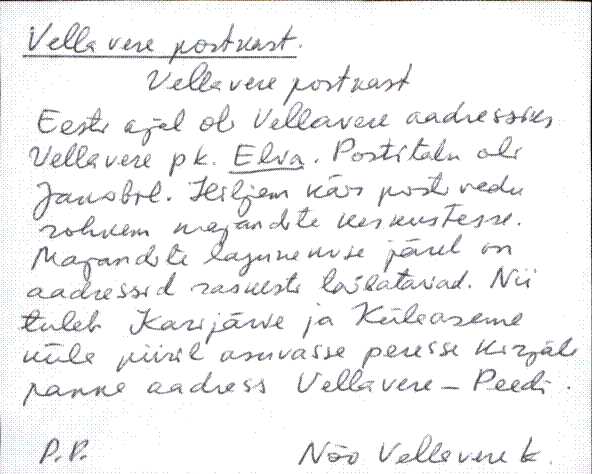 Vellavere postkast.
Vellavere postkast
Eesti ajal oli Vellavere aadressiks
Vellavere pk. Elva. Postitalu oli
Jaanobil. Hiljem käis postivedu
rohkem majandite keskustesse.
Majandite lagunemise järel on
aadressid raskesti loetavad. Nii
tuleb Karijärve ja Külaaseme
küla piiril asuvasse peresse kirjale
panna aadress Vellavere - Peedi.
P.P. Nõo Vellavere k.